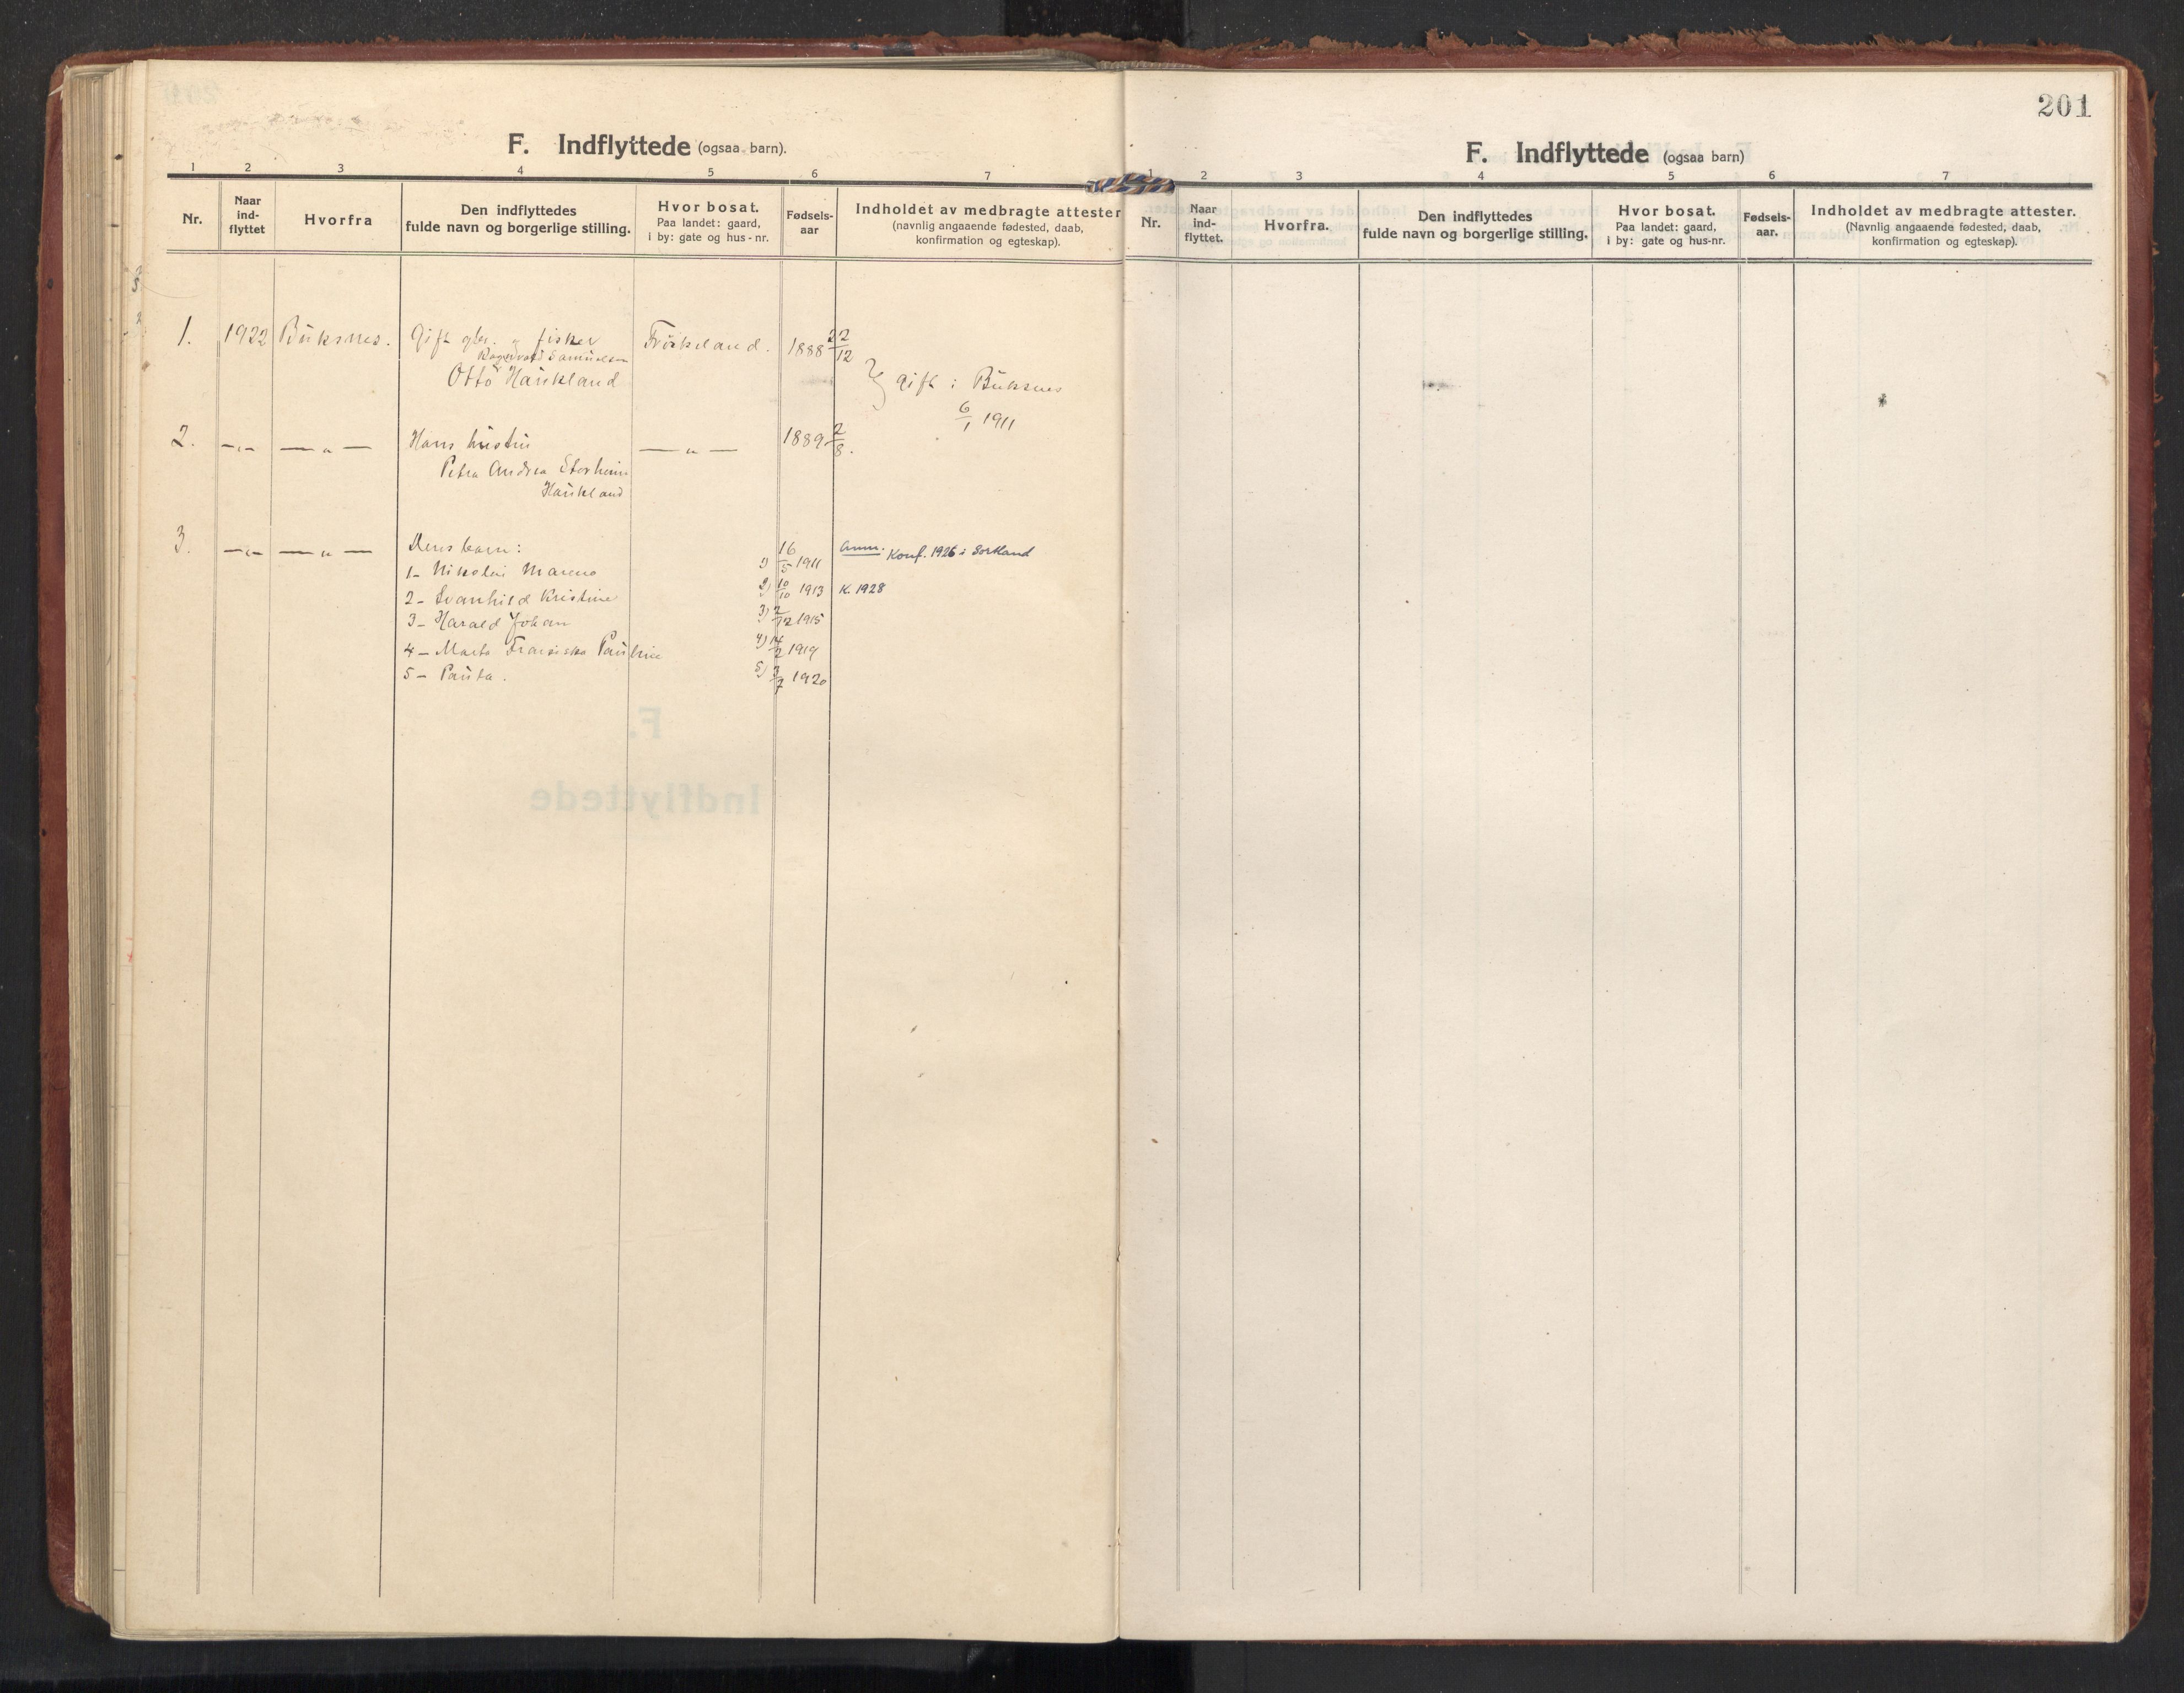 F. Indflyttede (ogsaa barn).
1 2 3 4 5 6 7
Nr.
Naar ind-flyttet
Hvorfra
Den indflyttedes
fulde navn og borgerlige stilling.
Hvor bosat.
Paa landet: gaard,
i by: gate og hus-nr.
Fødsels-
aar
Indholdet av medbragte attester
(navnlig angaaende fødested, daab,
konfirmation og egteskap).
1. 1922 Buksnes. Gift gbr. og fisker Frøskeland. 1888 22/12
Ragnvald Samuelsen
Otto Haukland
} gift i Buksnes
6/1 1911
2. —"— —"— Hans hustru —"— 1889 2/8.
Petra Andrea Storheim
Haukland
3. —"— —"— Deres barn:
1- Nikolai Mareno 1) 16/5 1911 Anm. Konf. 1926 i Sortland
2- Svanhild Kristine 2) 10/10 1913 K. 1928
3- Harald Johan 3) 2/12 1915
4- Marta Fransiska Pauline 4) 14/2 1919
5- Paula. 5) 3/7 1920
201
F. Indflyttede (ogsaa barn)
1 2 3 4 5 6 7
Nr.
Naar
ind-
flyttet.
Hvorfra.
Den indflyttedes
fulde navn og borgerlige stilling.
Hvor bosat.
Paa landet: gaard,
i by: gate og hus-nr.
Fødsels-
aar.
Indholdet av medbragte attester.
(Navnlig angaaende fødested, daab,
konfirmation og egteskap).